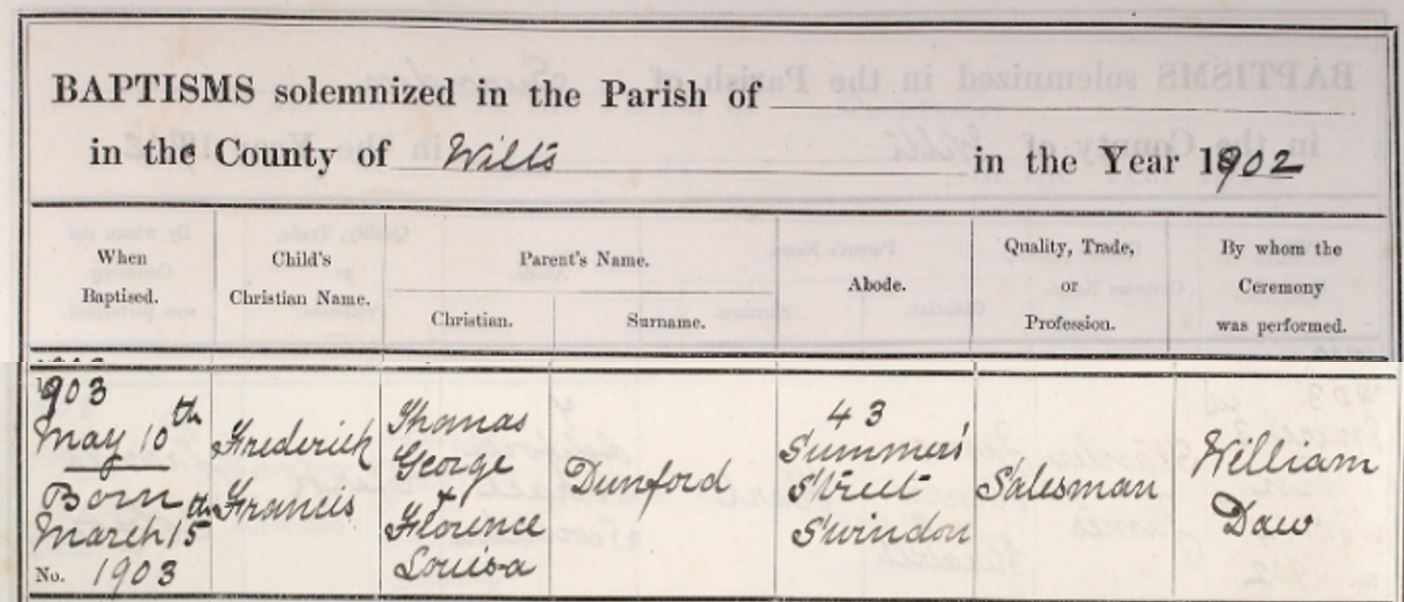 BAPTISMS solemnized in the Parish of
in the County of Wilts in the Year 1902
When Baptised.
Child's Christian Name.
Parent's Name.
Christian.
Surname.
Abode.
Quality, Trade, or Profession.
By whom the Ceremony was performed.
1903
May 10th
Born
March 15th
No. 1903
Frederick
Francis
Thomas
George
+
Florence
Louisa
Dunford
43
Summers'
Street
Swindon
Salesman
William
Daw